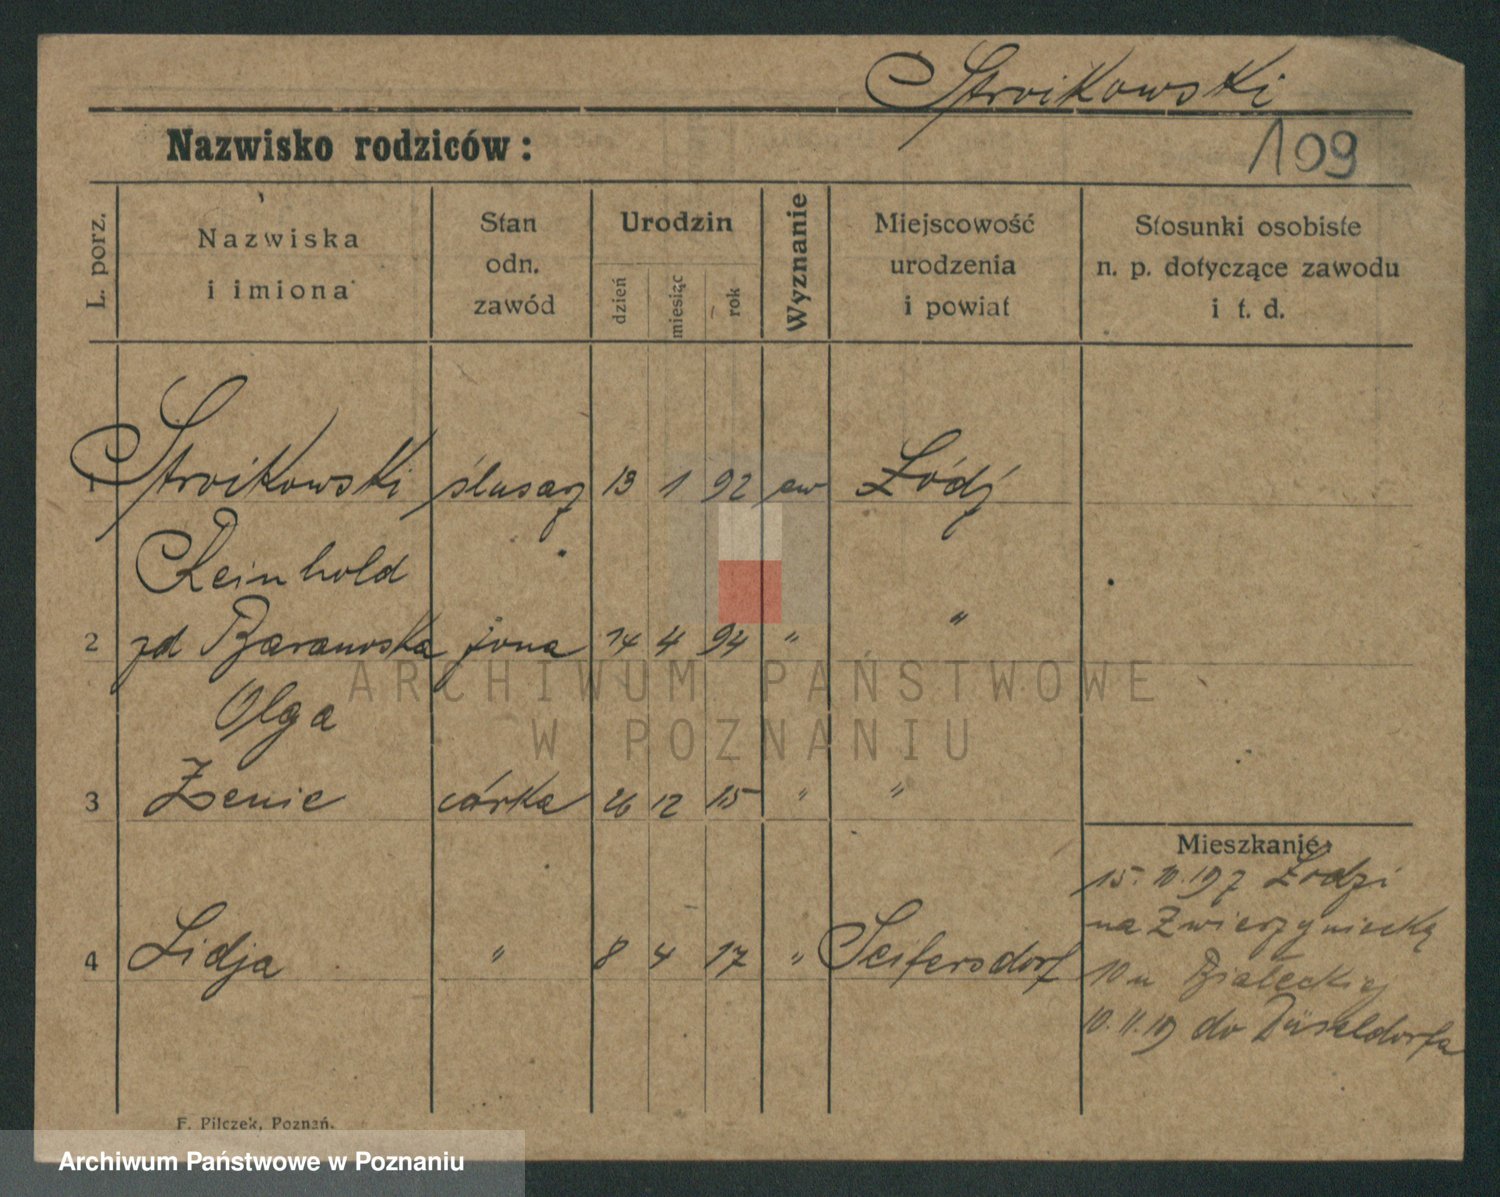 Stroikowski
Nazwisko rodziców:
109
L. porz.
Nazwiska
i imiona
Stan
odn.
zawód
Urodzin
dzień
miesiąc
rok
Wyznanie
Miejscowość
urodzenia
i powiat
Stosunki osobiste
n. p. dotyczące zawodu
i t. d.
1 Stroikowski ślusarz 13 1 92 ew Łódź
Reinhold
2 zd Baranowska żona 14 4 94 " "
Olga
3 Zenie córka 26 12 15 " "
Mieszkanie:
15.10.19 z Łodzi
na Zwierzyniecką
4 Lidja " 8 4 17 " Seifersdorf
10 u Białeckiej
10.11.19 do Düseldorfa
F. Pilczek, Poznań.
ARCHIWUM PAŃSTWOWE
W POZNANIU
Archiwum Państwowe w Poznaniu